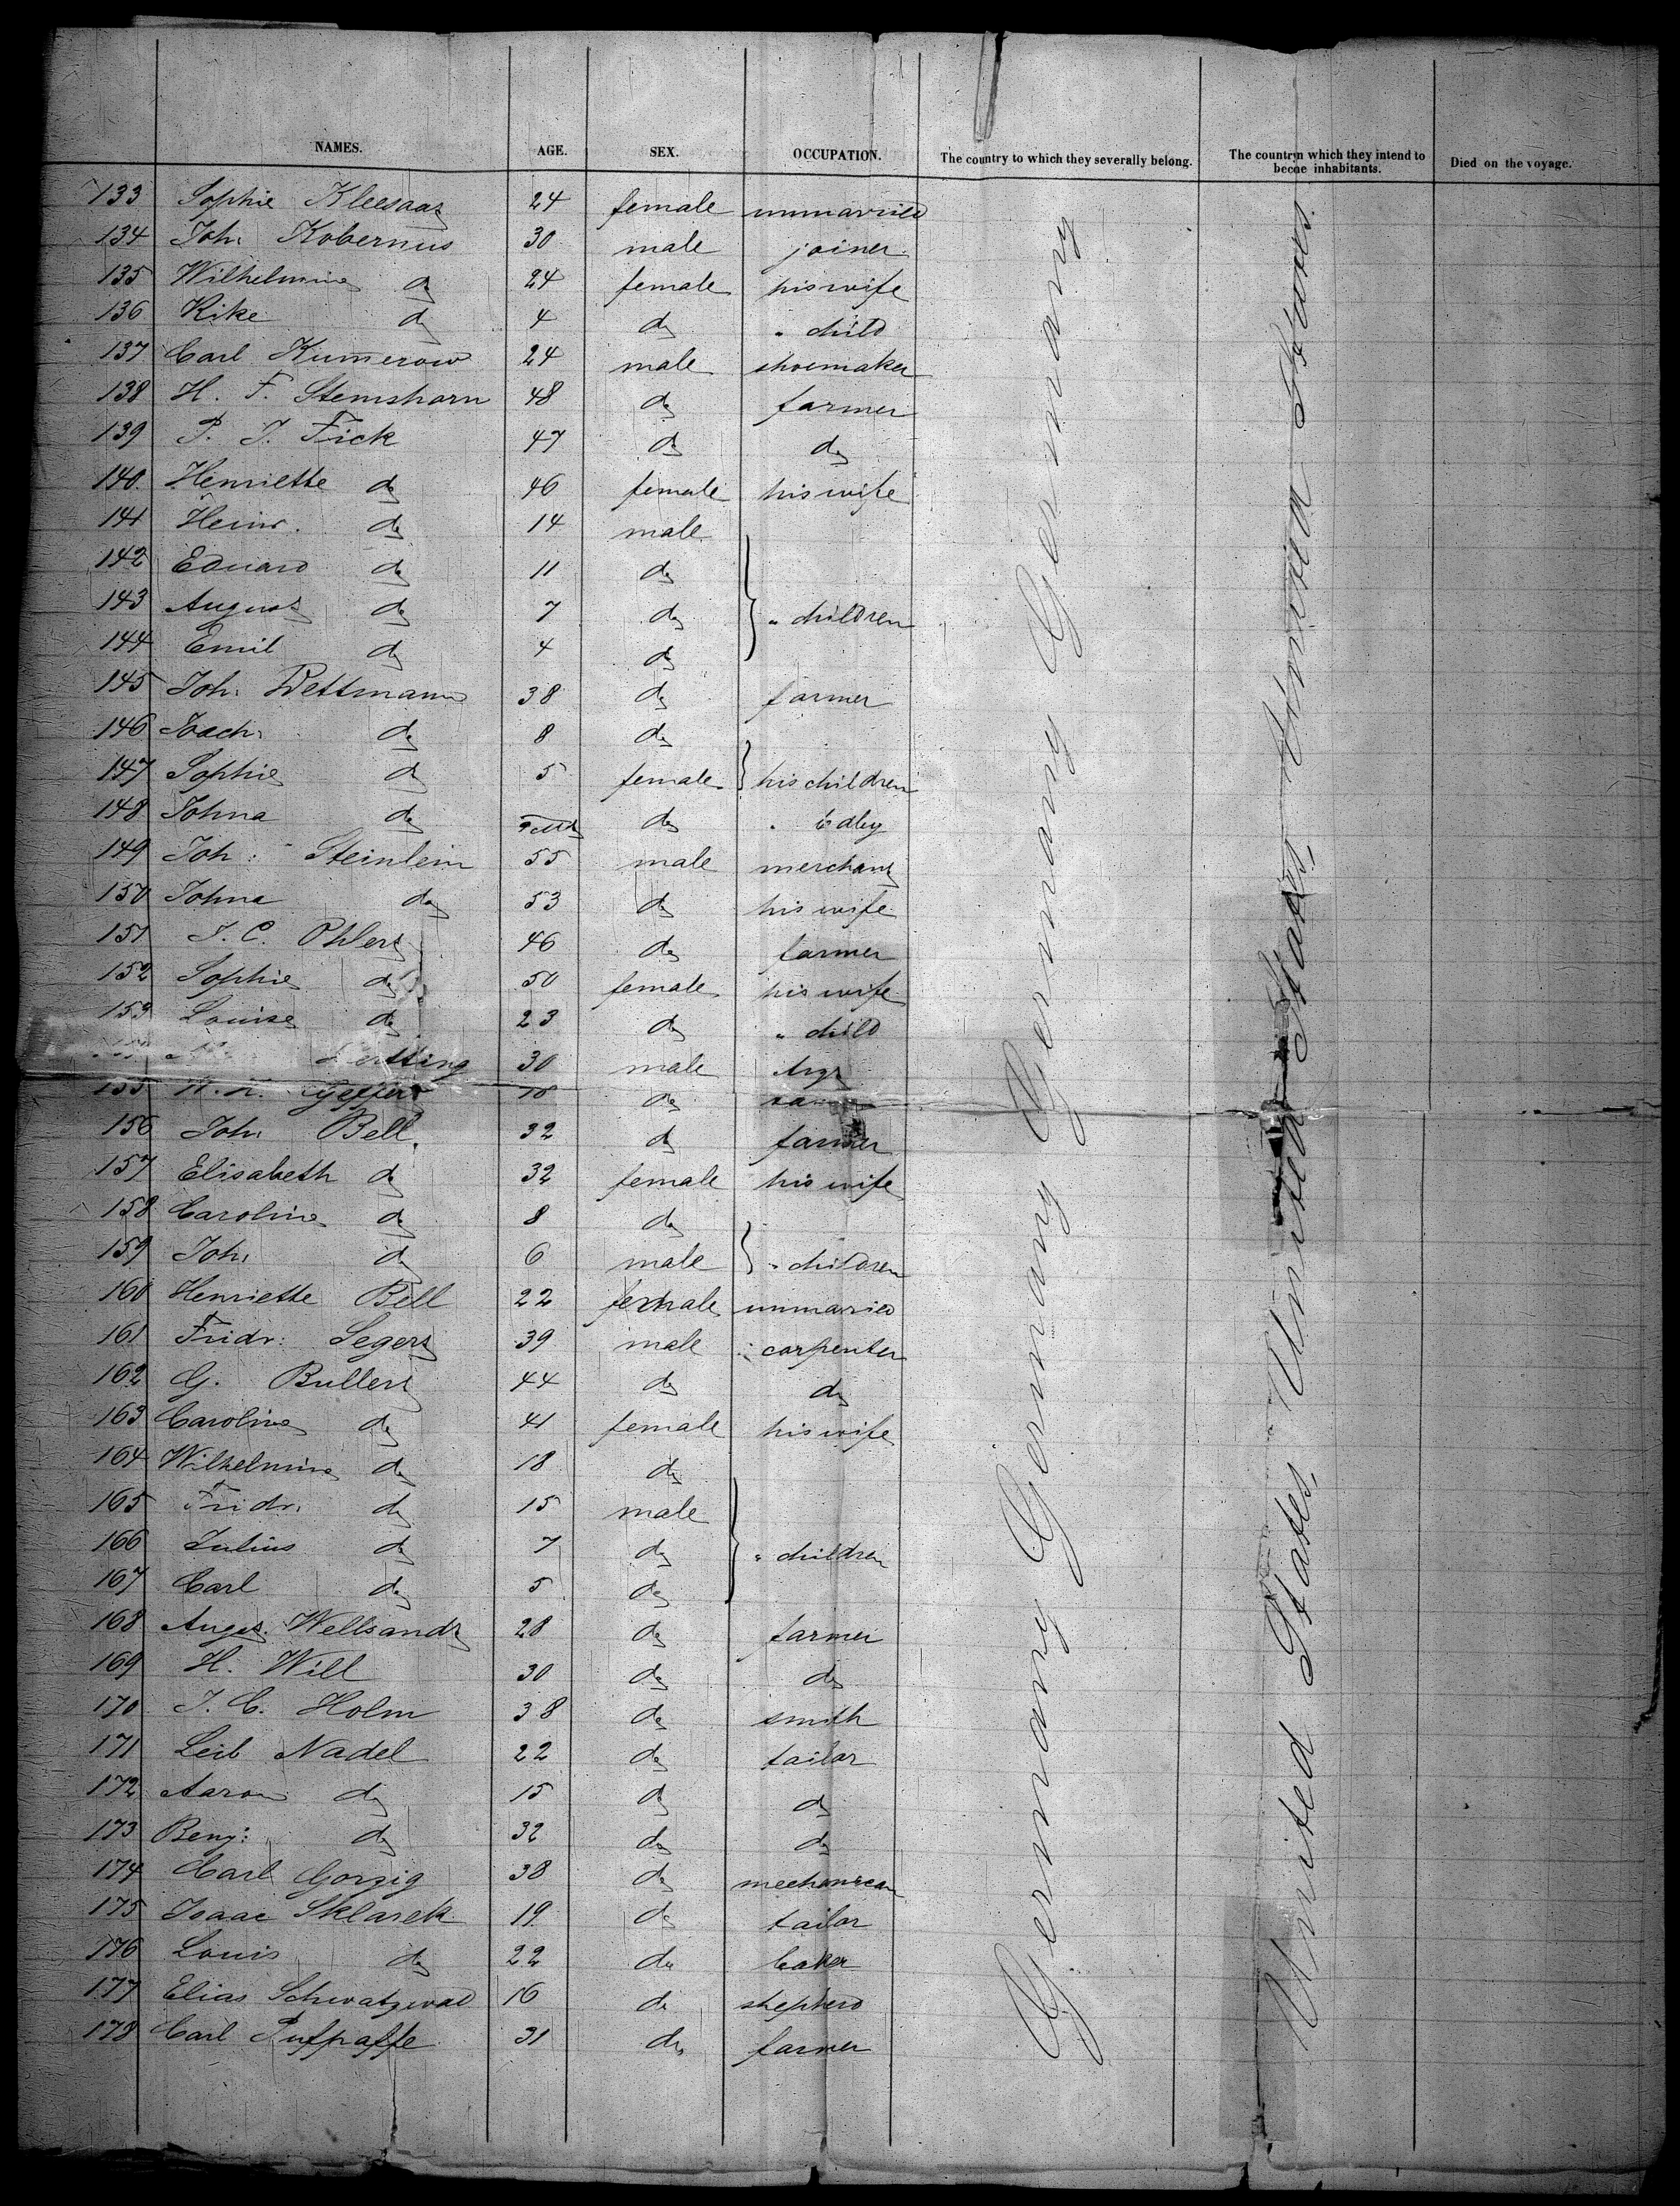 NAMES. AGE. SEX. OCCUPATION. The country to which they severally belong. The countryn which they intend to becoe inhabitants. Died on the voyage.
133 Sophie Kleesaat 24 female unmarried
134 Joh. Kobernus 30 male joiner
135 Wilhelmine do 24 female his wife
136 Rike do 4 do " child
137 Carl Kumerow 24 male shoemaker
138 H. F. Stemshorn 48 do farmer
139 P. J. Fick 47 do do
140. Henriette do 46 female his wife
141 Heinr. do 14 male
142 Eduard do 11 do
143 August do 7 do " children
144 Emil do 4 do
145 Joh. Wettmann 38 do farmer
146 Joach. do 8 do
147 Sophie do 5 female his children
148 Johna do do " baby
149 Joh: Steinlein 55 male merchant
150 Johna do 53 do his wife
151 J. C. Ohlert 46 do farmer
152 Sophie do 50 female his wife
153 Louise do 23 do " child
30 male
155 do
156 Joh. Bell. 32 do farmer
157 Elisabeth do 32 female his wife
158 Caroline do 8 do
159 Joh. do 6 male " children
160 Henriette Bell 22 female unmaried
161 Fridr: Segert 39 male carpenter
162 G. Bullert 44 do do
163 Caroline do 41 female his wife
164 Wilhelmine do 18 do
165 Fridr. do 15 male
166 Julius do 7 do " children
167 Carl do 5 do
168 Augst. Wellsandt 28 do farmer
169 H. Will 30 do do
170 J. C. Holm 38 do smith
171 Leib Nadel 22 do tailor
172 Aaron do 15 do do
173 Benj: do 32 do do
174 Carl Gorzig 38 do mechanican
175 Isaac Sklarek 19 do tailor
176 Louis do 22 do baker
177 Elias Schwatzwald 16 do shepherd
178 Carl Pufpaffe 31 do farmer
Germany Germany Germany Germany Germany Germany
United States, United States, United States.